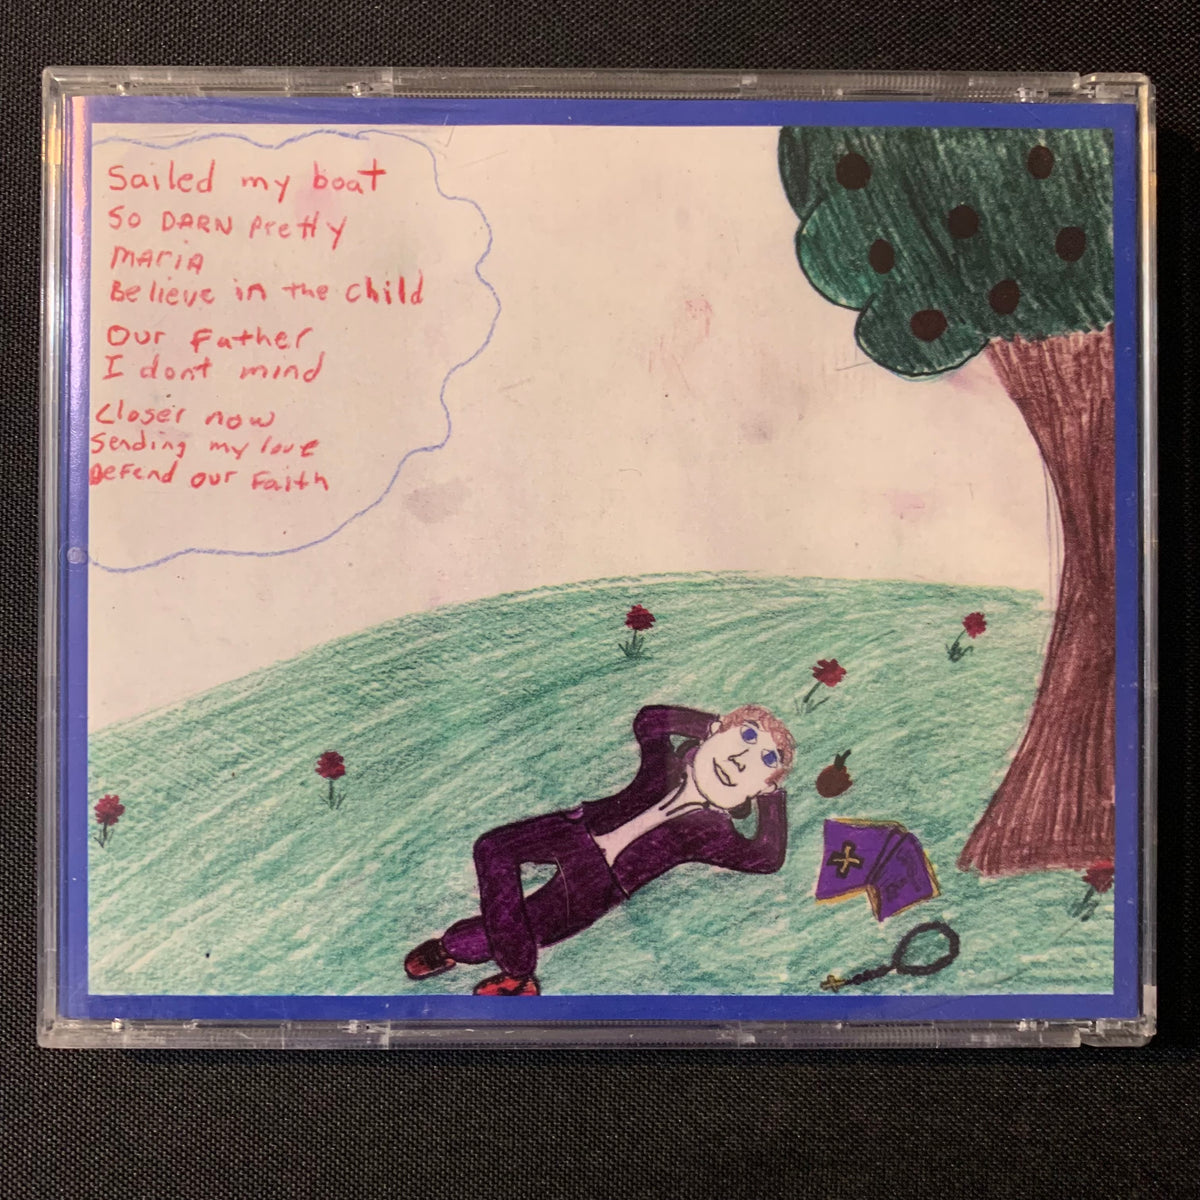 Sailed my boat
So DARN Pretty
MARIA
Believe in the Child
Our Father
I dont mind
Closer now
Sending my love
Defend our Faith